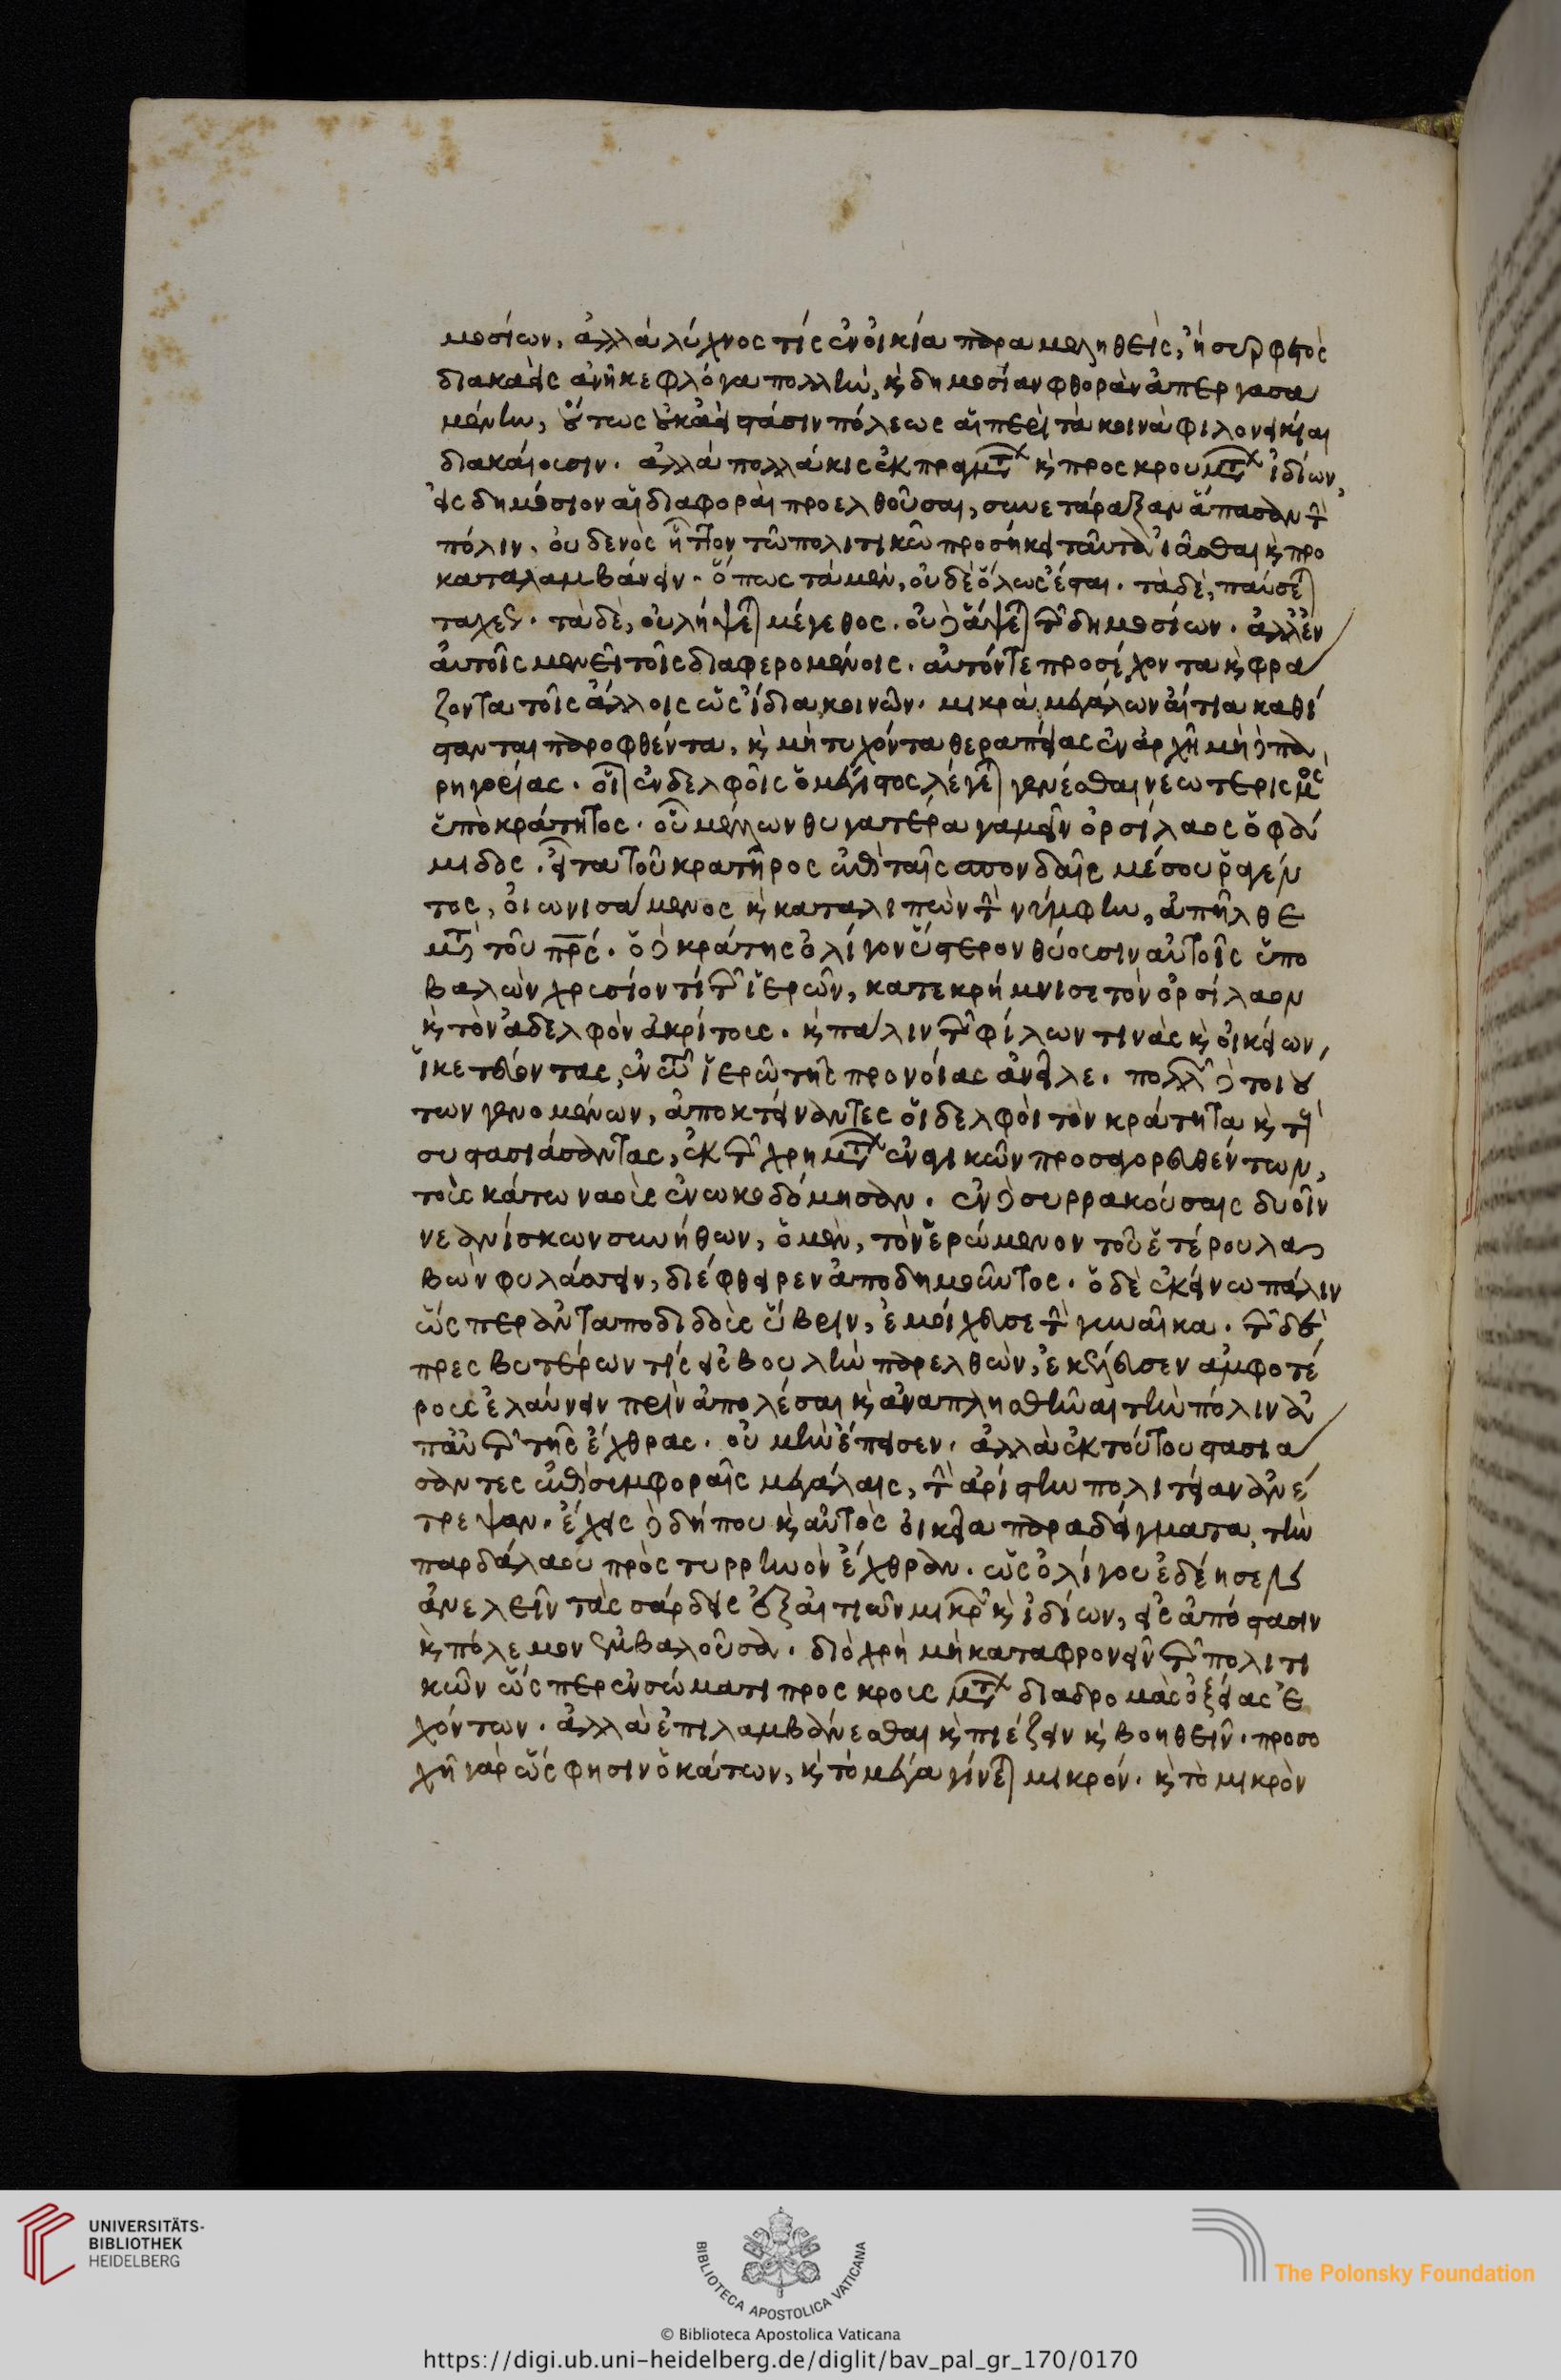 μοσίων, ἀλλὰ λύχνος τίς ἐν οἰκία παραμεληθεὶς, ἢ συρφετὸς
διακαεὶς ἀνῆκε φλόγα πολλὴν, καὶ δημοσίαν φθορὰν ἀπεργασα
μένην, οὕτως οὐκ ἀεὶ στάσιν πόλεως αἱ περὶ τὰ κοινὰ φιλονεικίαι
διακαίουσιν. ἀλλὰ πολλάκις ἐκ πραγμάτων καὶ προσκρουμάτων ἰδίων,
εἰς δημόσιον αἱ διαφοραὶ προελθοῦσαι, συνετάραξαν ἅπασαν τὴν
πόλιν. οὐδενὸς ἧττον τῶ πολιτικῶ προσήκει ταῦτα ἰᾶσθαι καὶ προ
καταλαμβάνειν. ὅπως τὰ μὲν, οὐδὲ ὅλως ἔσται. τὰ δὲ, παύσεται
ταχέως. τὰ δὲ, οὐ λήψεται μέγεθος. οὐδὲ ἅψεται τῶν δημοσίων. ἀλλ' ἐν
αὐτοῖς μενεῖ τοῖς διαφερομένοις. αὐτόν τε προσέχοντα καὶ φρα
ζοντα τοῖς ἄλλοις ὡς ἴδια κοινῶν. μικρὰ μεγάλων αἴτια καθί
σταται παροφθέντα, καὶ μὴ τυχόντα θεραπείας ἐν ἀρχῆ μὴ δὲ πα
ρηγορίας. οἷον ἐν δελφοῖς ὁ μέγιστος λέγεται γενέσθαι νεωτερισμὸς
ὑπὸ κράτητος. οὗ μέλλων θυγατέρα γαμεῖν ὀρσίλαος ὁ φαλ
μιδος. εἶτα τοῦ κρατῆρος ἐπὶ ταῖς σπονδαῖς μέσου ῥαγέν
τος, οἰωνισάμενος καὶ καταλιπὼν τὴν νύμφην, ἀπῆλθε
μετὰ τοῦ πρς. ὁ δὲ κράτης ὀλίγον ὕστερον θύουσιν αὐτοῖς ὑπο
βαλὼν χρυσίον τὶ τῶν ἱερῶν, κατεκρήμνισε τὸν ὀρσίλαον
καὶ τὸν ἀδελφὸν ἀκρίτους. καὶ πάλιν τῶν φίλων τινὰς καὶ οἰκείων,
ἱκετεύοντας, ἐν τῶ ἱερῶ τῆς προνοίας ἀνεῖλε. πολλῶν δὲ τοιού
των γενομένων, ἀποκτείναντες οἱ δελφοὶ τὸν κράτητα καὶ τοὺς
συστασιάσαντας, ἐκ τῶν χρημάτων ἐναγικῶν προσαγορευθέντων,
τοὺς κάτω ναοὺς ἐνωκοδόμησαν. ἐν δὲ συρρακούσαις δυοῖν
νεανίσκων συνήθων, ὁ μὲν, τὸν ἐρώμενον τοῦ ἑτέρου λα
βὼν φυλάσσειν, διέφθειρεν ἀποδημοῦντος. ὁ δὲ ἐκείνω πάλιν
ὥσπερ ἀνταποδιδοὺς ὕβριν, ἐμοίχευσε τὴν γυναῖκα. τῶν δὲ
πρεσβυτέρων τίς εἰς βουλὴν παρελθὼν, ἐκέλευσεν ἀμφοτέ
ρους ἐλαύνειν πρὶν ἀπολέσαι καὶ ἀναπλησθῆναι τὴν πόλιν ἀπ'
αὐτῶν τῆς ἔχθρας. οὐ μὴν ἔπεισεν. ἀλλὰ ἐκ τούτου στασιά
σαντες ἐπὶ συμφοραῖς μεγάλαις, τὴν ἀρίστην πολιτείαν ἀνέ
τρεψαν. ἔχεις δὲ δήπου καὶ αὐτὸς οἰκεῖα παραδείγματα, τὴν
παρδάλαου πρὸς τυρρηνὸν ἔχθραν. ὡς ὀλίγου ἐδέησεν
ἀνελεῖν τὰς σάρδεις ἐξ αἰτιῶν μικρῶν καὶ ἰδίων, εἰς ἀπόστασιν
καὶ πόλεμον ἐμβαλοῦσα. διὸ χρὴ μὴ καταφρονεῖν τῶν πολιτι
κῶν ὥσπερ ἐν σώματι προσκρουσμάτων διαδρομὰς ὀξείας ἐ
χόντων. ἀλλὰ ἐπιλαμβάνεσθαι καὶ πιέζειν καὶ βοηθεῖν. προσο
χῆ γὰρ ὥς φησιν ὁ κάτων, καὶ τὸ μέγα γίνεται μικρόν. καὶ τὸ μικρὸν
UNIVERSITÄTS-
BIBLIOTHEK
HEIDELBERG
BIBLIOTECA APOSTOLICA VATICANA
The Polonsky Foundation
© Biblioteca Apostolica Vaticana
https://digi.ub.uni-heidelberg.de/diglit/bav_pal_gr_170/0170